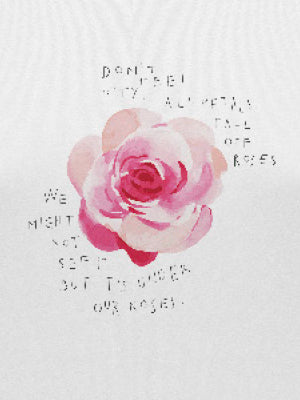 DON'T
FEEL
ALL PETALS
FALL
OFF
ROSES
WE
MIGHT
NOT
SEE IT
BUT IT'S UNDER
OUR ROSES.